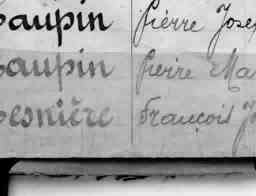 Gaupin Pierre Jose
Gaupin Pierre Ma
Lesnière François J